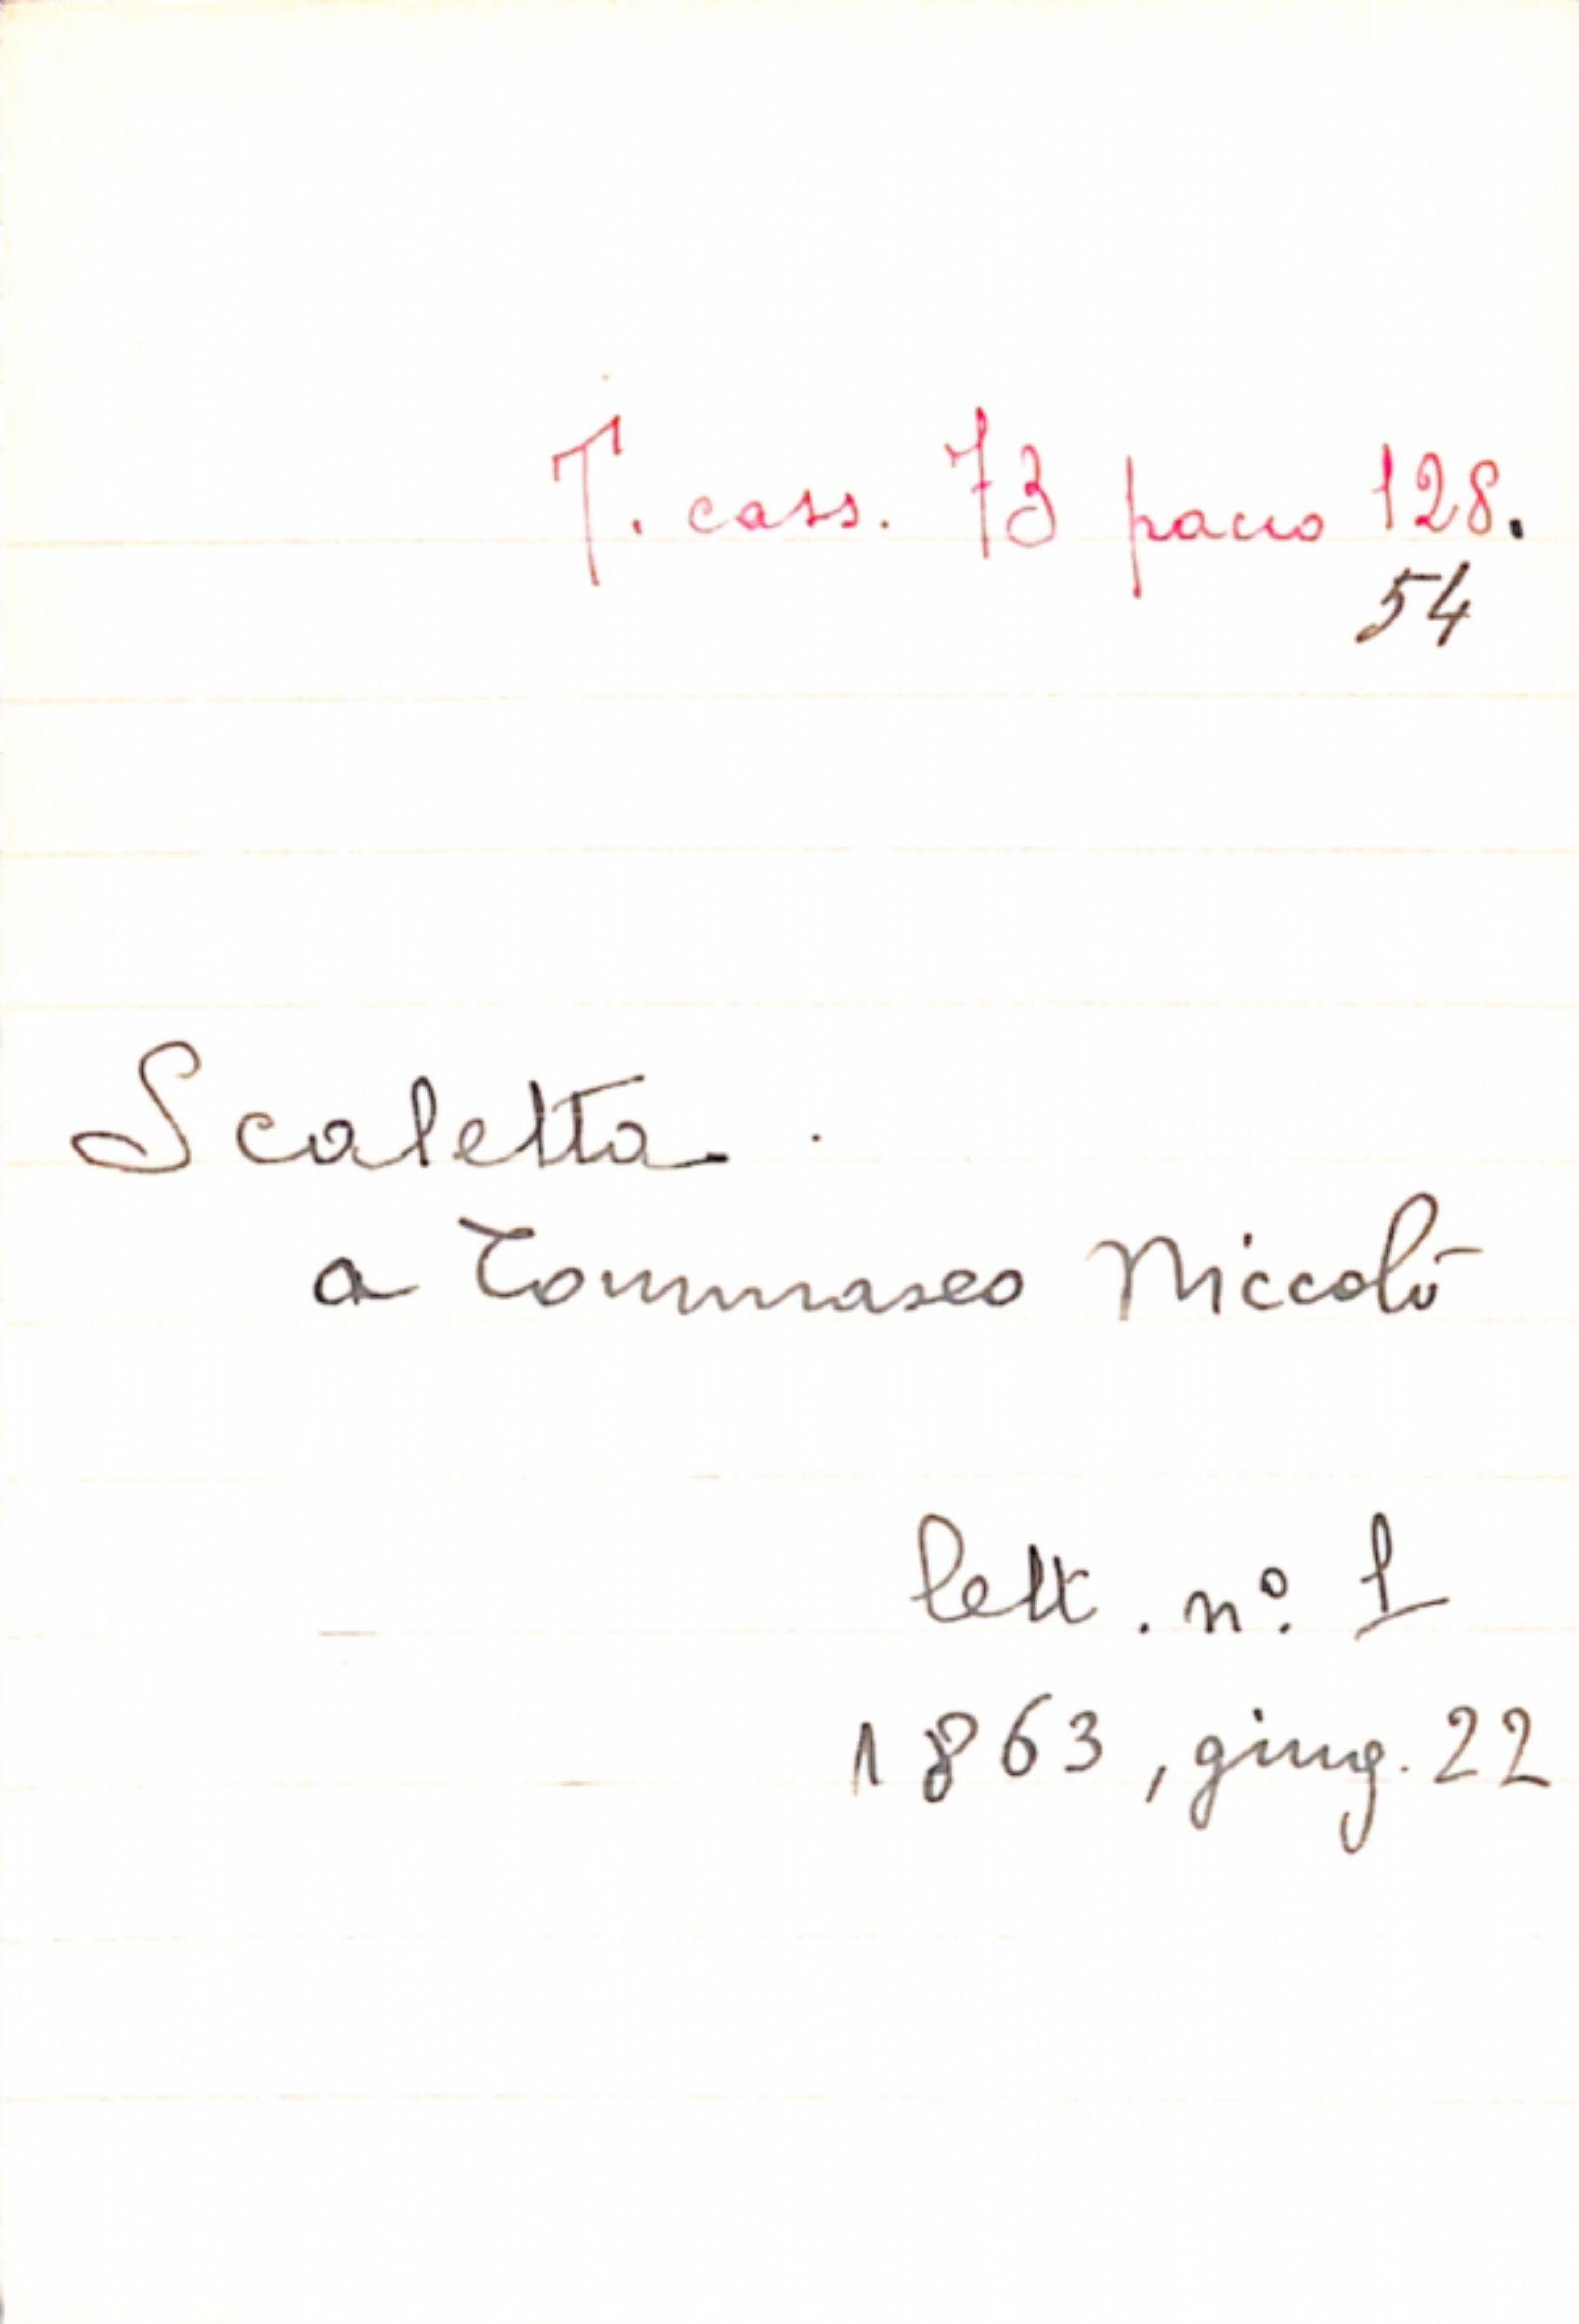 T. cass. 73 pacco 128.
54
Scaletta
a Tommaseo Niccolò
lett. nº. 1
1863, giug. 22